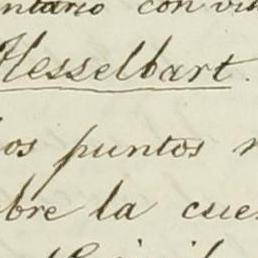 ntario con vi
Hesselbart.
los puntos
bre la cue